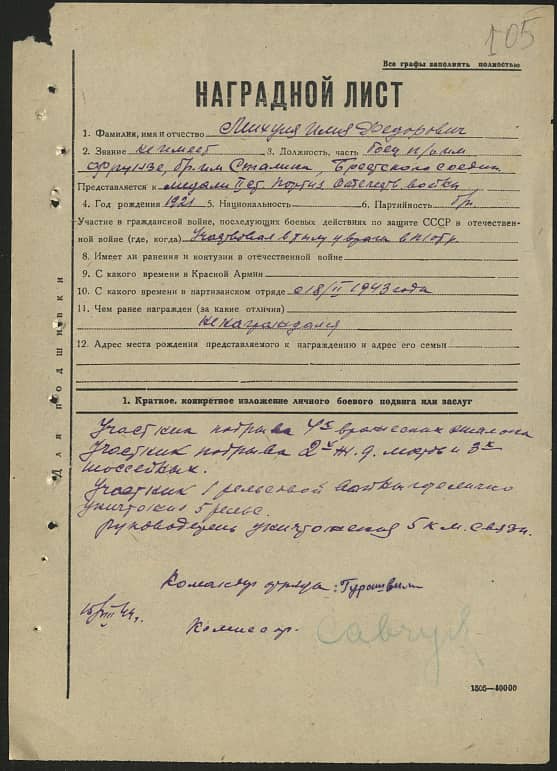 105
Все графы заполнять полностью
НАГРАДНОЙ ЛИСТ
1. Фамилия, имя и отчество Михуля Илья Федорович
2. Звание не имеет 3. Должность, часть боец п/о им
Фрунзе, бр. им Сталина, Брестского соедин.
Представляется к медали ст Партиз Отечеств войны
4. Год рождения 1921 5. Национальность 6. Партийность б/п.
Участие в гражданской войне, последующих боевых действиях по защите СССР в отечествен-
ной войне (где, когда) Участвовал в тылу врага в п/отр.
8. Имеет ли ранения и контузии в отечественной войне
9. С какого времени в Красной Армии
10. С какого времени в партизанском отряде с 18/II 1943 года
11. Чем ранее награжден (за какие отличия)
не награждался
12. Адрес места рождения представляемого к награждению и адрес его семьи
Для подшивки
1. Краткое, конкретное изложение личного боевого подвига или заслуг
Участник подрыва 4х вражеских эшелона
Участник подрыва 2х ж.д. мостов и 3х
шоссейных.
Участник рельсовой войны где лично
уничтожил 5 рельс.
Руководитель уничтожения 5 км. связи.
Командир отряда:
15/VIII 44г.
Комиссар. Савчук
1505—40000